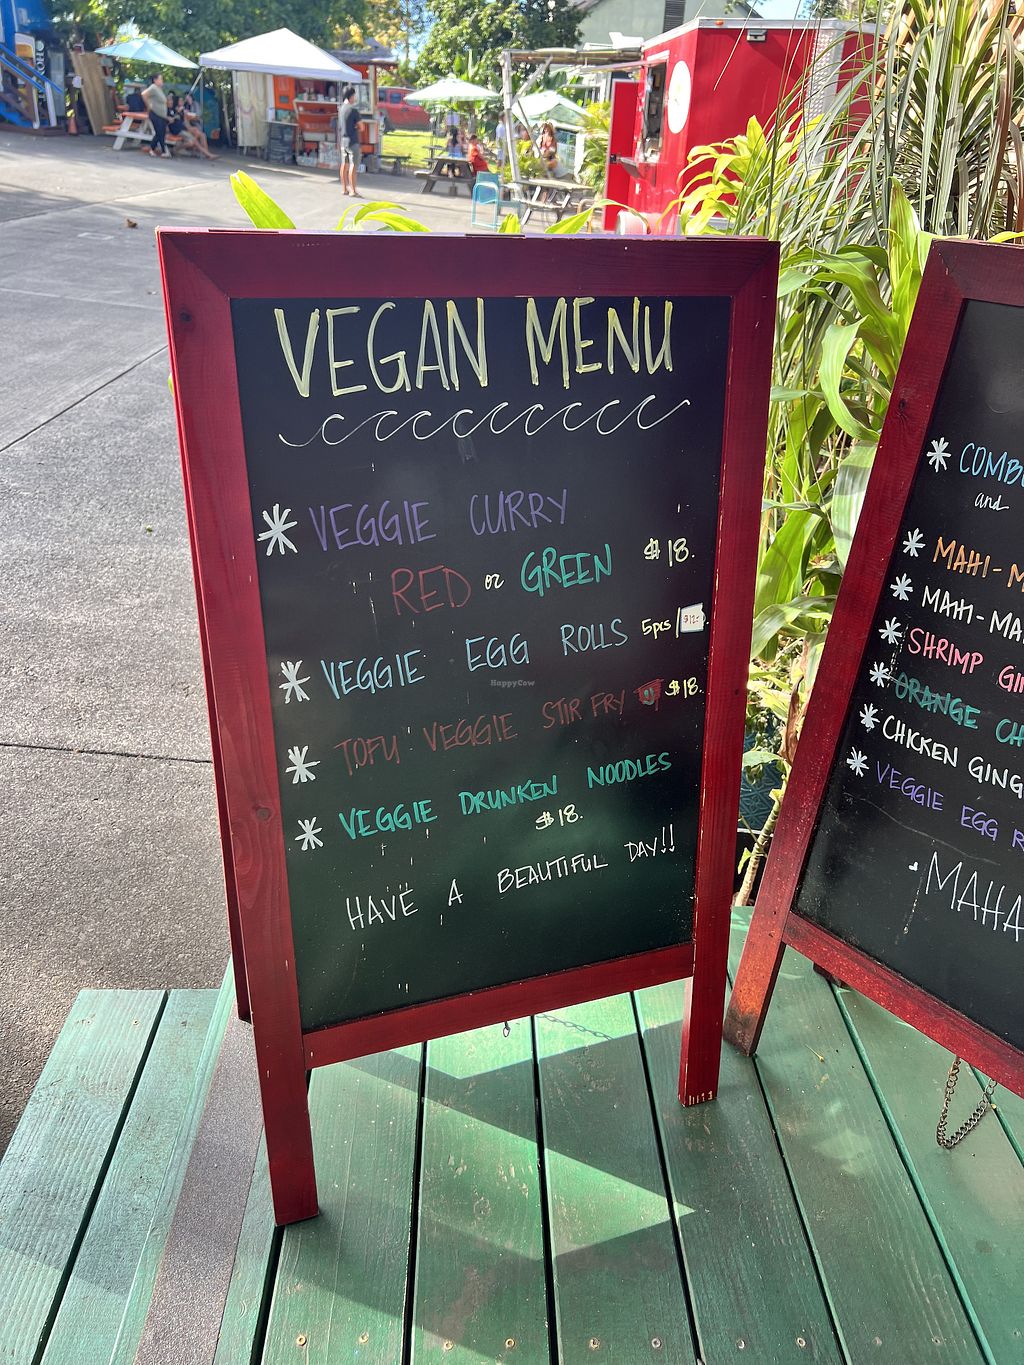 VEGAN MENU
* VEGGIE CURRY
RED or GREEN $18.
* VEGGIE EGG ROLLS 5pcs/$12-
* TOFU VEGGIE STIR FRY $18.
* VEGGIE DRUNKEN NOODLES
$18.
HAVE A BEAUTIFUL DAY!!
HappyCow
and
* MAHI-
* MAHI-
* SHRIMP
* ORANGE
* CHICKEN
* VEGGIE EGG